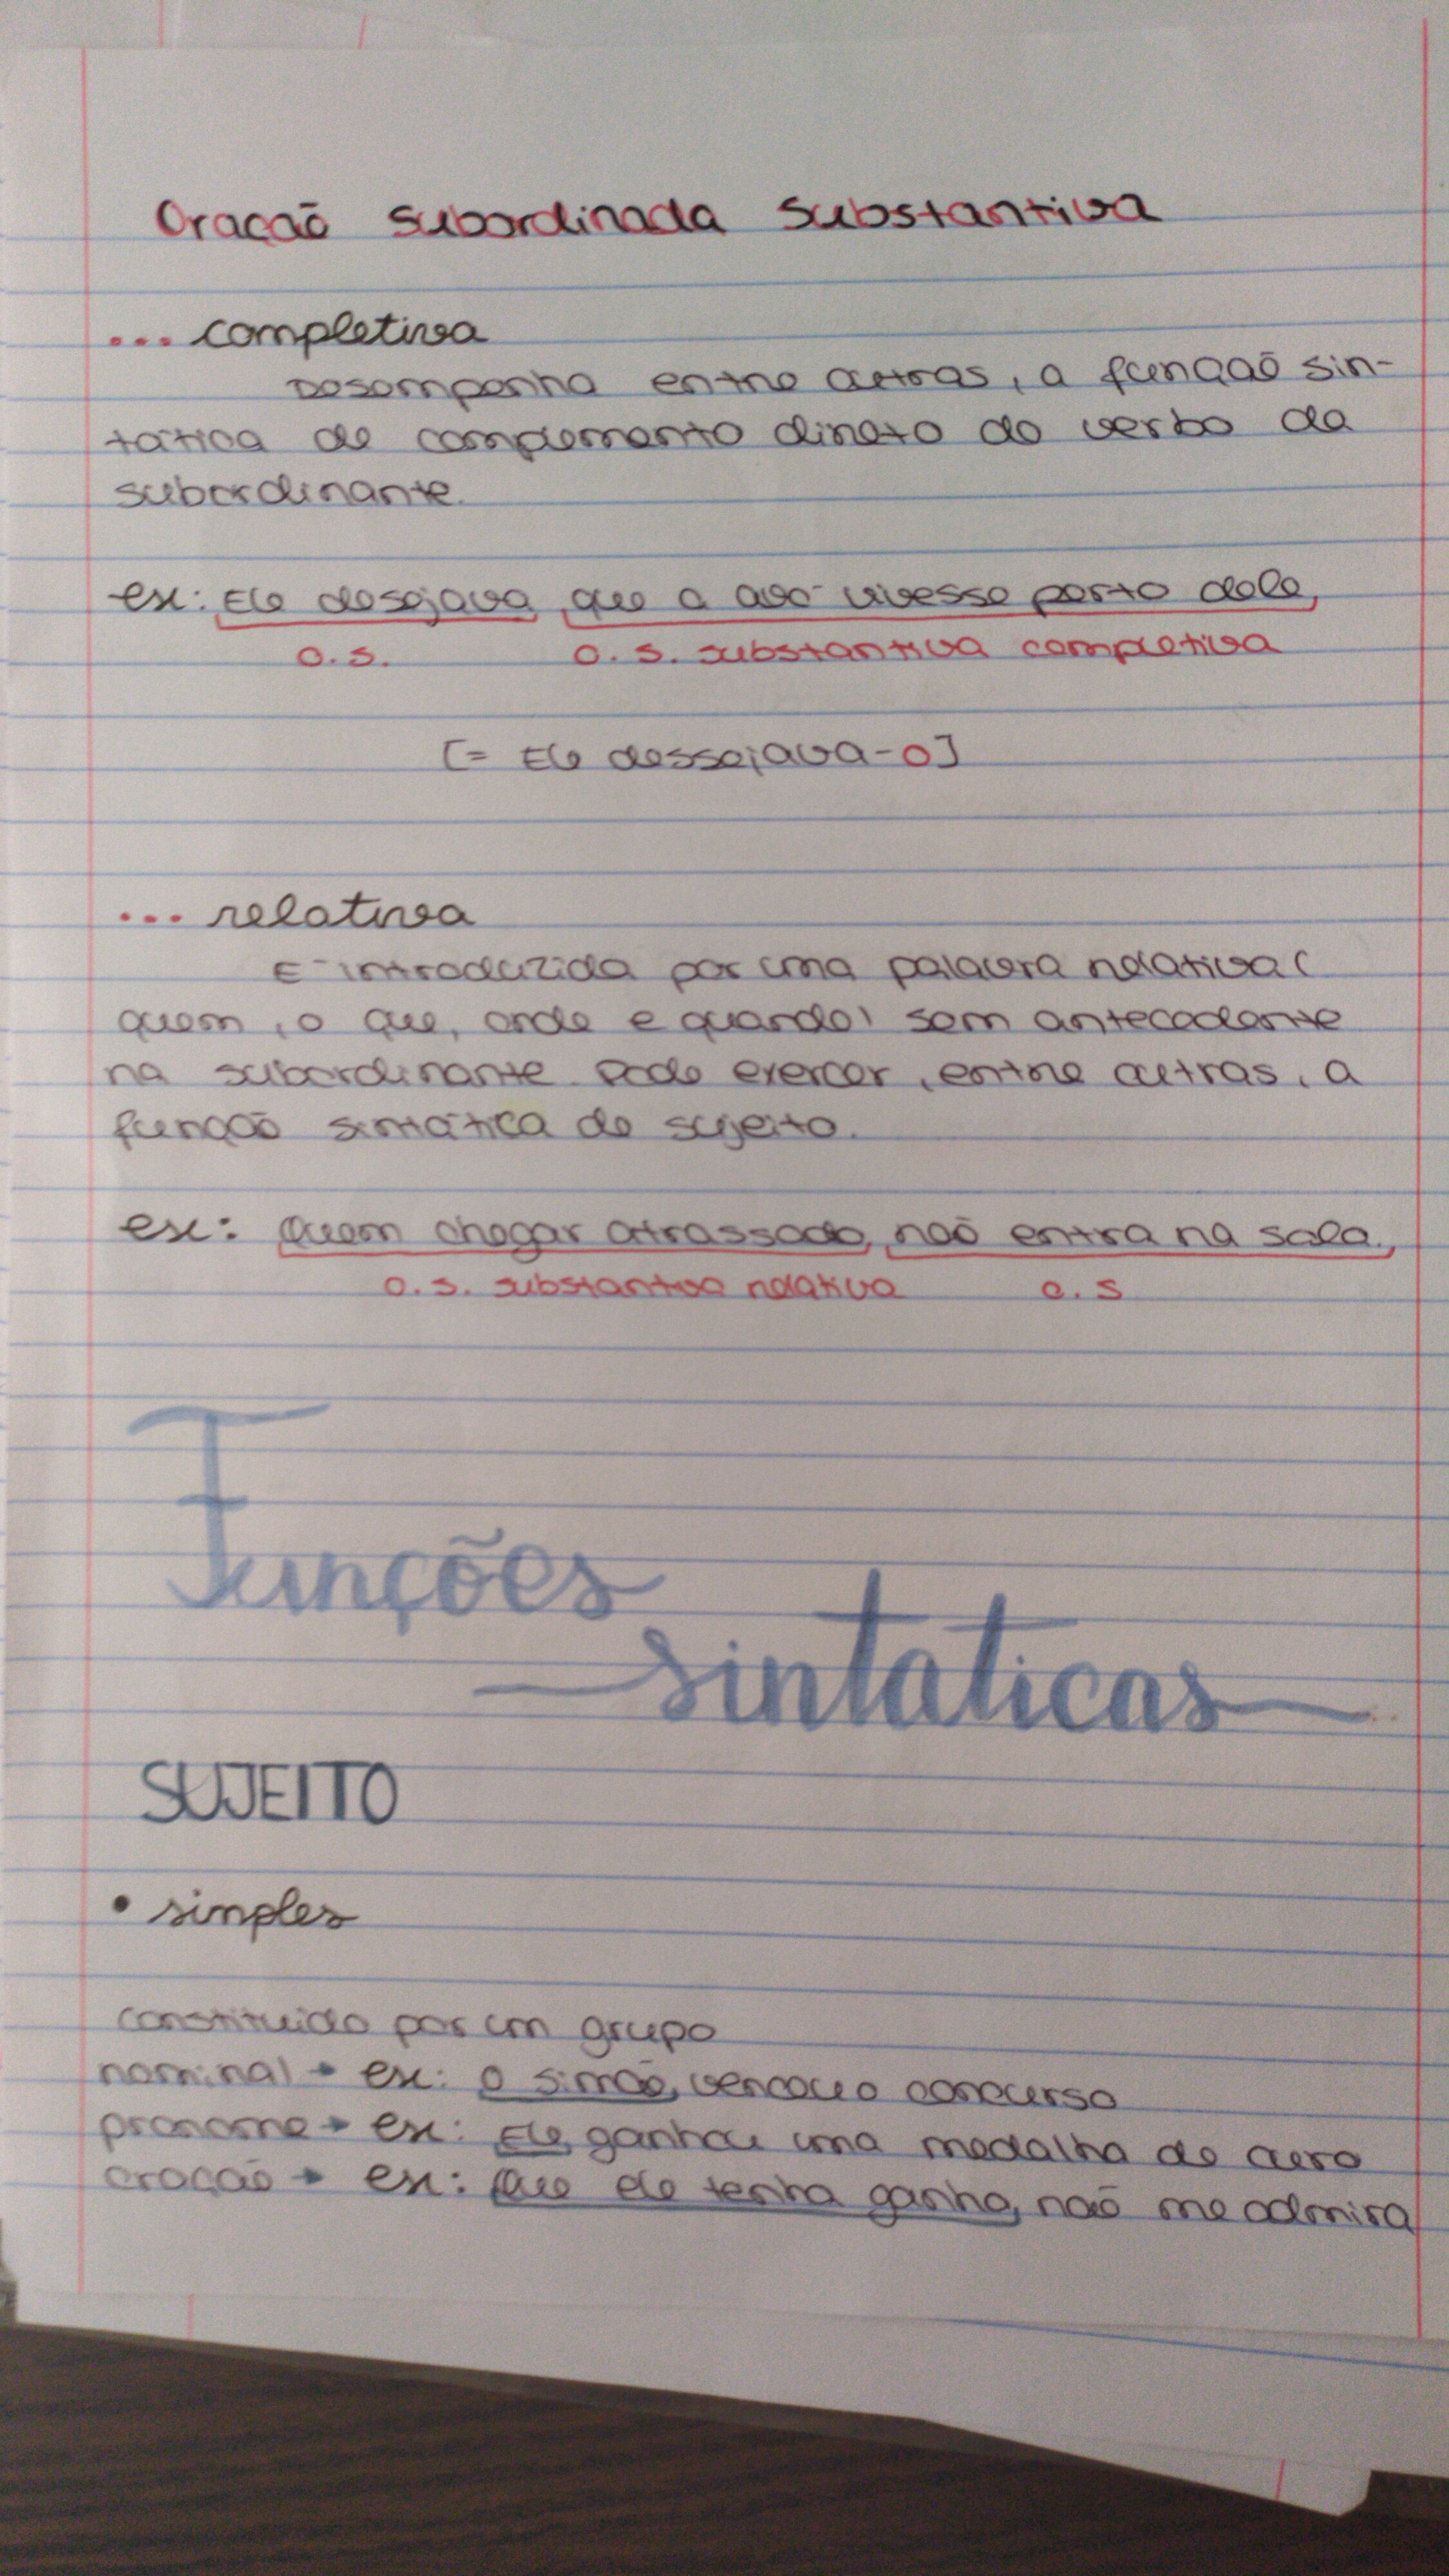 Oração subordinada substantiva
... completiva
Desempenha entre outras, a função sin-
tática de complemento direto do verbo da
subordinante.
ex: Ele desejava que a avó vivesse perto dele,
O.S. O.S. substantiva completiva
[= Ele dessejava-o]
... relativa
É introduzida por uma palavra relativa (
quem, o que, onde e quando) sem antecedente
na subordinante. Pode exercer, entre outras, a
função sintática de sujeito.
ex: Quem chegar atrassado, não entra na sala.
O.S. substantiva relativa O.S
Funções
sintaticas
SUJEITO
• simples
constituido por um grupo
nominal → ex: O simão, venceu o concurso
pronome → ex: Ele ganhou uma medalha de ouro
oração → ex: Que ele tenha ganho, não me admira